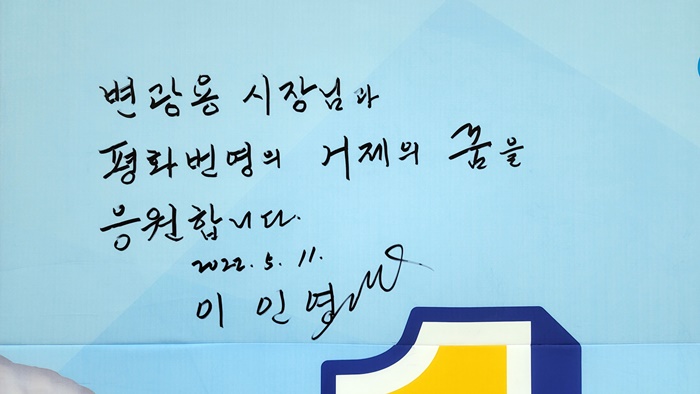 변광용 시장님과
평화번영의 거제의 꿈을
응원합니다.
2022. 5. 11.
이인영
1